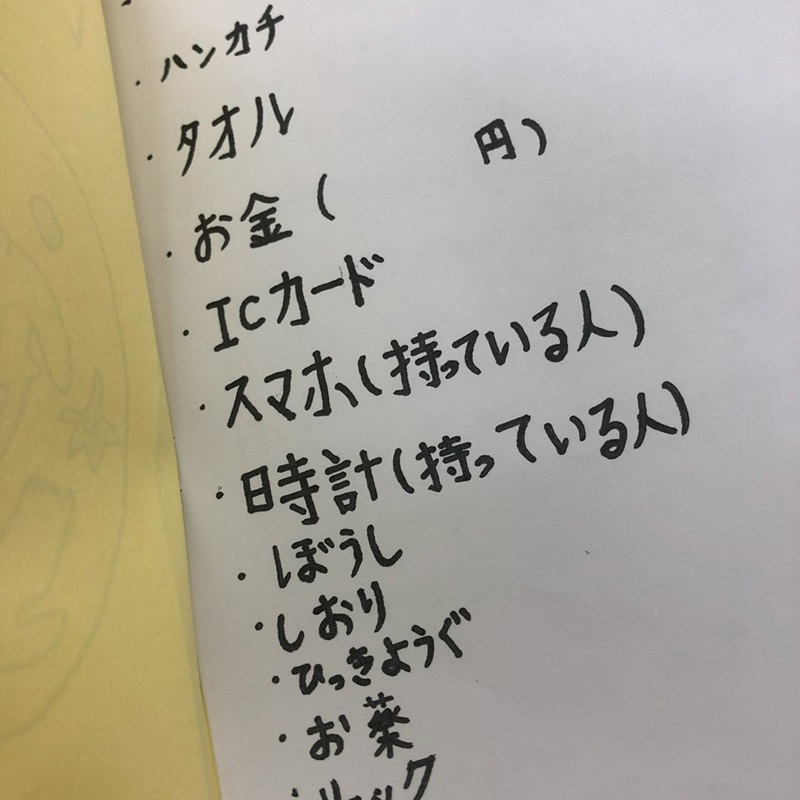 ・ハンカチ
・タオル
・お金（　　　円）
・ICカード
・スマホ（持っている人）
・時計（持っている人）
・ぼうし
・しおり
・ひっきようぐ
・お薬
・リュック